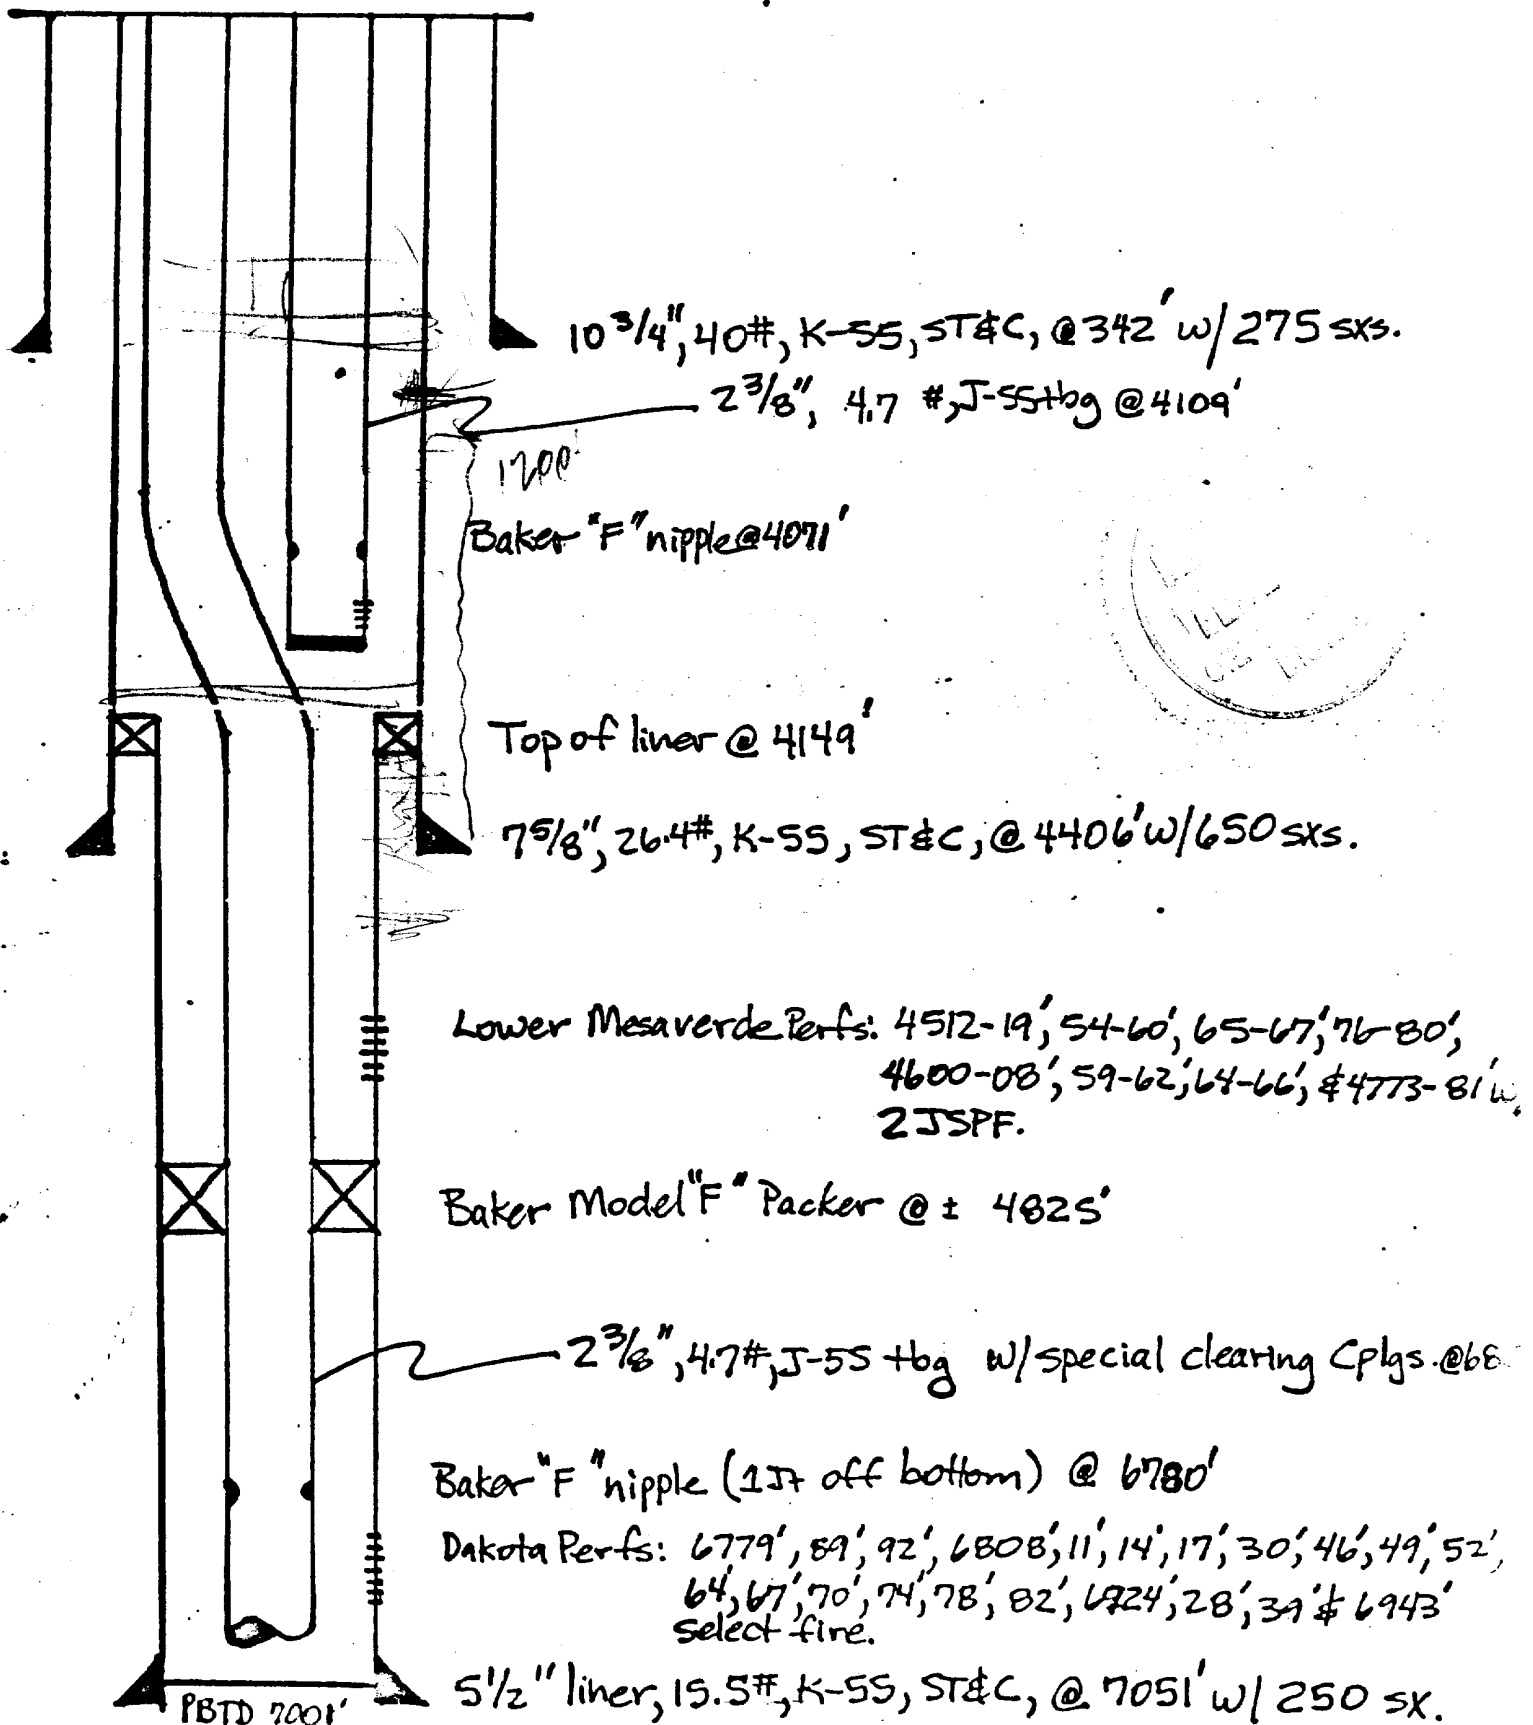 10 3/4", 40#, K-55, ST&C, @ 342' w/ 275 sxs.
2 3/8", 4.7 #, J-55 tbg @ 4109'
1200'
Baker "F" nipple @ 4071'
Top of liner @ 4149'
7 5/8", 26.4#, K-55, ST&C, @ 4406' w/ 650 sxs.
Lower Mesaverde Perfs: 4512-19', 54-60', 65-67', 76-80',
4600-08', 59-62', 64-66', & 4773-81' w/
2 JSPF.
Baker Model "F" Packer @ ± 4825'
2 3/8", 4.7#, J-55 tbg w/ special clearing Cplgs. @
Baker "F" nipple (1 Jt off bottom) @ 6780'
Dakota Perfs: 6779', 89', 92', 6808', 11', 14', 17', 30', 46', 49', 52',
64', 67', 70', 74', 78', 82', 6924', 28', 39' & 6943'
select fire.
5 1/2" liner, 15.5#, K-55, ST&C, @ 7051' w/ 250 sx.
PBTD 7001'